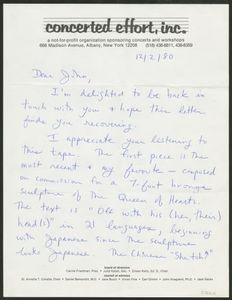 concerted effort, inc.
a not-for-profit organization sponsoring concerts and workshops
668 Madison Avenue, Albany, New York 12208 (518) 438-6811, 438-8359
12/2/80
Dear John,
I'm delighted to be back in
touch with you & hope this letter
finds you recovering.
I appreciate your listening to
this tape. The first piece is the
most recent & my favorite – composed
on commission for a 7-foot bronze
sculpture of the Queen of Hearts.
The text is "Off with his (her, their)
head(s)" in 21 languages, beginning
with Japanese since the sculpture
looks Japanese. The Chinese
board of directors